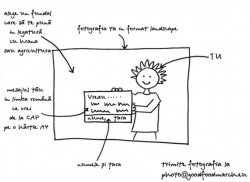 alege un fundal
care să te pună
în legătură
cu hrana
sau agricultura
fotografia ta în format landscape
TU
mesajul tău
în limba română
ce vrei
de la CAP
pe o hârtie A4
Vreau.....
numele, țara
numele și țara
trimite fotografia la
photo@goodfoodmarch.eu